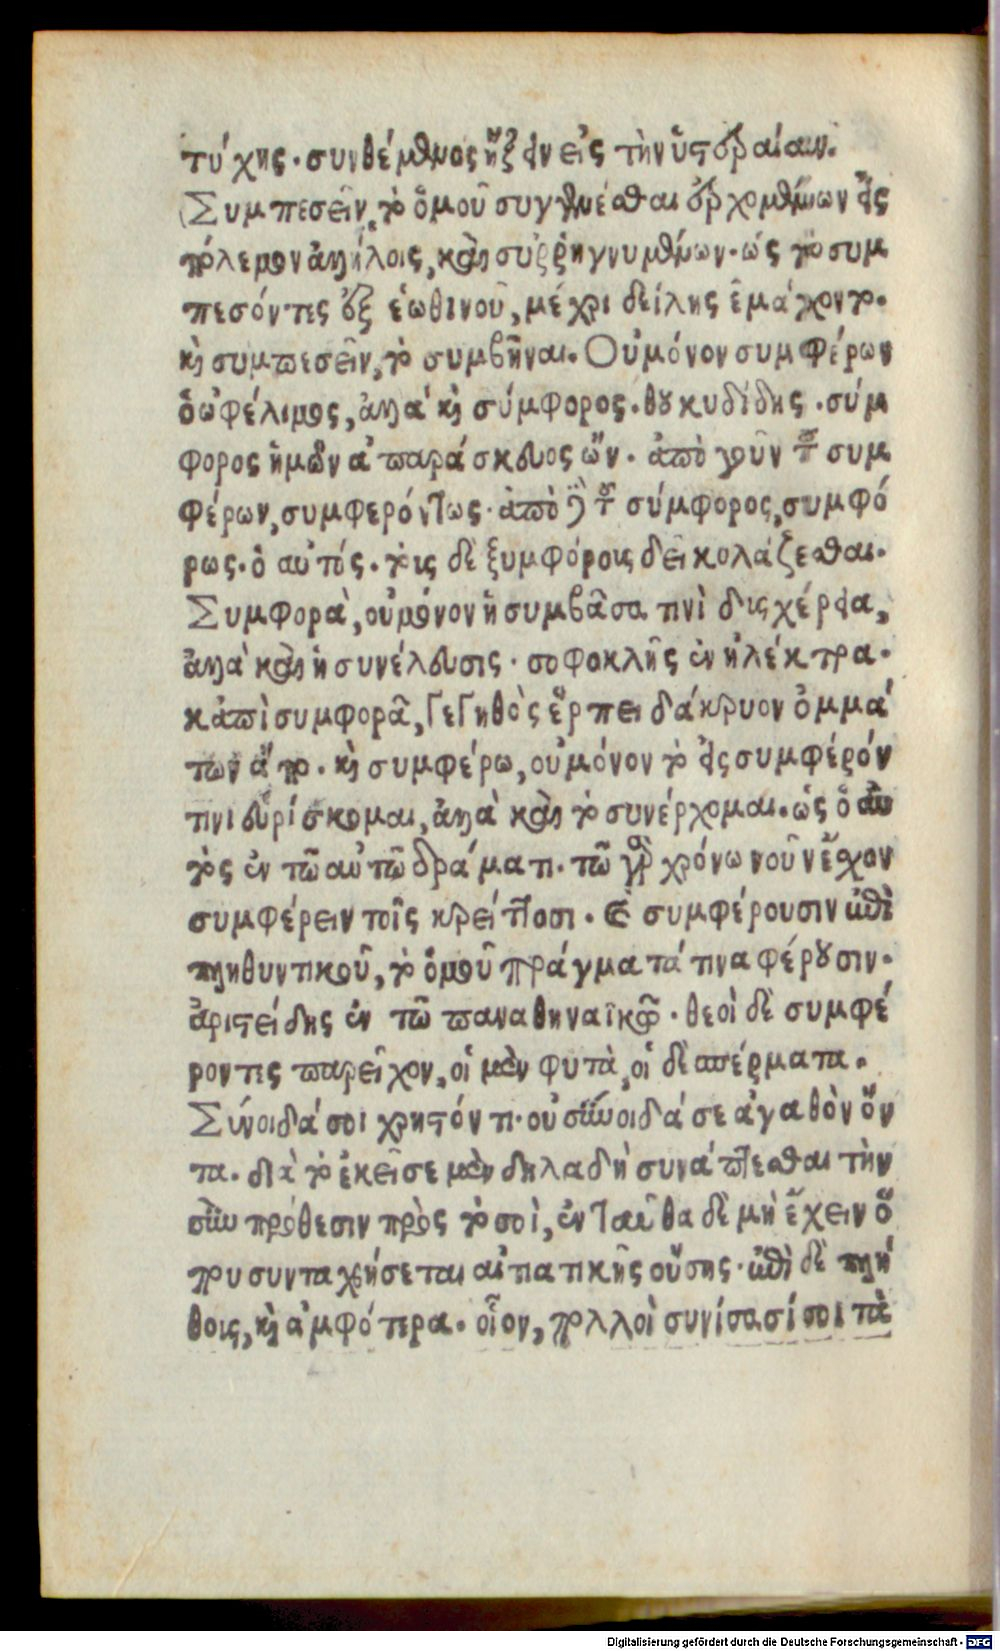 τύχης. συνθέμενος ἥξειν εἰς τὴν ὑστεραίαν.
Συμπεσεῖν, τὸ ὁμοῦ συγγενέσθαι ἐρχομένων εἰς
πόλεμον ἀλλήλοις, καὶ συῤῥηγνυμένων. ὡς τὸ συμ
πεσόντες ἐξ ἑωθινοῦ, μέχρι δείλης ἐμάχοντο.
καὶ συμπεσεῖν, τὸ συμβῆναι. Οὐ μόνον συμφέρων
ὁ ὠφέλιμος, ἀλλὰ καὶ σύμφορος. θουκυδίδης. σύμ
φορος ἡμῶν ἀπαράσκευος ὤν. ἀπὸ γοῦν τοῦ συμ
φέρων, συμφερόντως. ἀπὸ δὲ τοῦ σύμφορος, συμφό
ρως. ὁ αὐτός. τοῖς δὲ ξυμφόροις δεῖ κολάζεσθαι.
Συμφορὰ, οὐ μόνον ἡ συμβᾶσα τινὶ δυσχέρεια,
ἀλλὰ καὶ ἡ συνέλευσις. σοφοκλῆς ἐν ἠλέκτρα.
κἀπὶ συμφορᾶ, γεγηθὸς ἕρπει δάκρυον ὀμμά
των ἄπο. καὶ συμφέρω, οὐ μόνον τὸ εἰς συμφέρόν
τινι εὑρίσκομαι, ἀλλὰ καὶ τὸ συνέρχομαι. ὡς ὁ αὐ
τὸς ἐν τῶ αὐτῶ δράματι. τῶ γὰρ χρόνω νοῦν ἔσχον
συμφέρειν τοῖς κρείττοσι. καὶ συμφέρουσιν ἐπὶ
πληθυντικοῦ, τὸ ὁμοῦ πράγματά τινα φέρουσιν.
ἀριστείδης ἐν τῶ παναθηναϊκῶ. θεοὶ δὲ συμφέ
ροντες παρεῖχον, οἱ μὲν φυτὰ, οἱ δὲ σπέρματα.
Σύνοιδά σοι χρηστόν τι. οὐ σύνοιδά σε ἀγαθὸν ὄν
τα. διὰ τὸ ἐκεῖσε μὲν δηλαδὴ συνάπτεσθαι τὴν
σὺν πρόθεσιν πρὸς τὸ σοὶ, ἐνταῦθα δὲ μὴ ἔχειν ὅ
που συνταχθήσεται αἰτιατικῆς οὔσης. ἐπὶ δὲ πλή
θους, καὶ ἀμφότερα. οἷον, πολλοὶ συνίσασί σοι τὰ
Digitalisierung gefördert durch die Deutsche Forschungsgemeinschaft - DFG